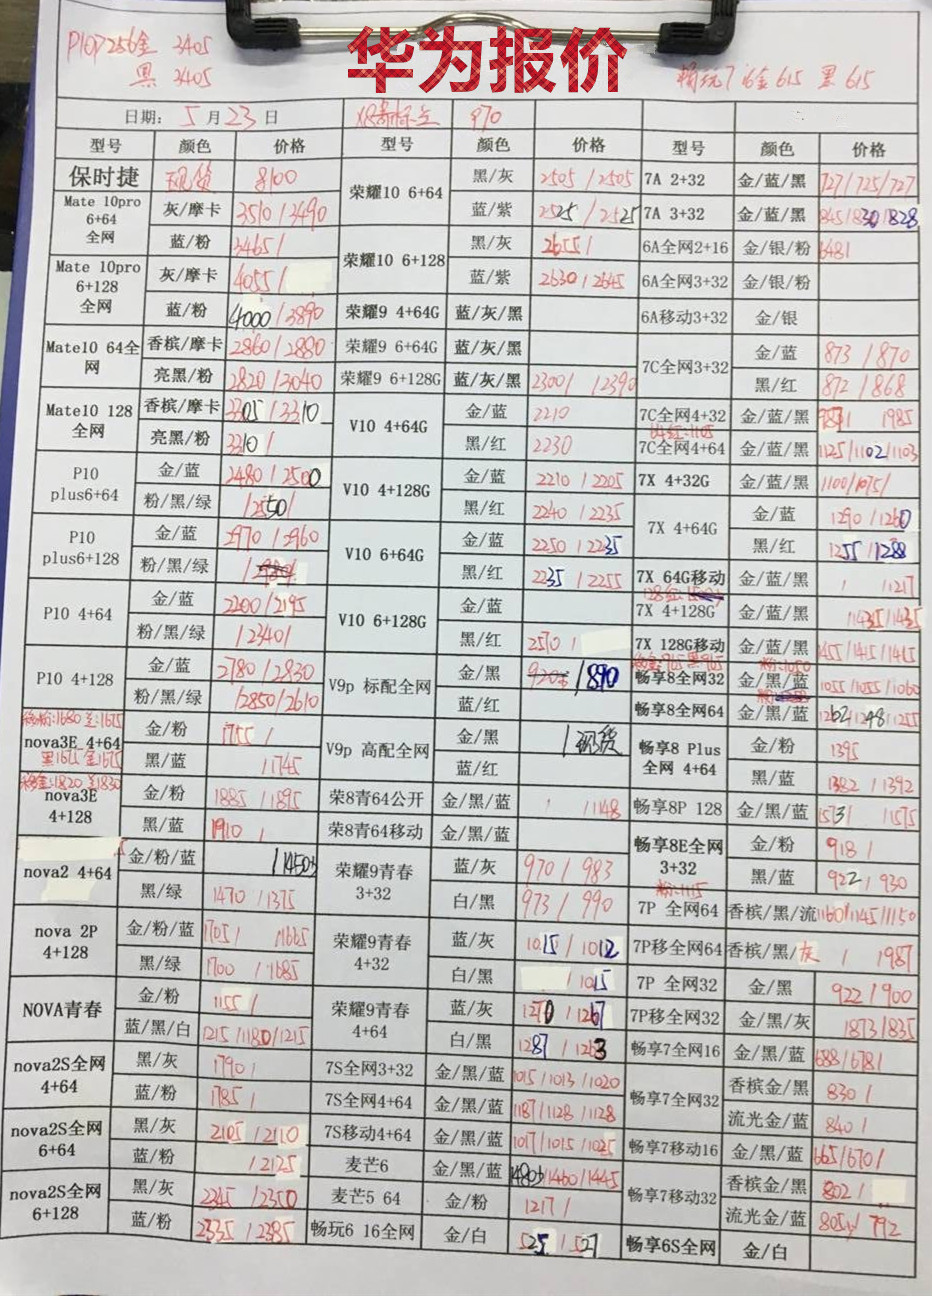 华为报价
P10P 256金 3405
黑 3405
畅玩7 16金 615 黑 615
日期： 5 月 23 日 970
型号 颜色 价格 型号 颜色 价格 型号 颜色 价格
保时捷 现货 8100
Mate 10pro 6+64 全网 灰/摩卡 3510/3490
蓝/粉 3465/
Mate 10pro 6+128 全网 灰/摩卡 4055/
蓝/粉 4000/3890
Mate10 64全网 香槟/摩卡 2860/2880
亮黑/粉 2820/3040
Mate10 128全网 香槟/摩卡 3305/3310
亮黑/粉 3310/
P10 plus6+64 金/蓝 2480/2500
粉/黑/绿 /2550/
P10 plus6+128 金/蓝 2970/2960
粉/黑/绿
P10 4+64 金/蓝 2200/2195
粉/黑/绿 /2340/
P10 4+128 金/蓝 2780/2830
粉/黑/绿 /2850/2610
nova3E 4+64 金/粉 1755/
黑1675 金1675 黑/蓝 /1745
nova3E 4+128 金/粉 1885/1895
黑/蓝 1910/
nova2 4+64 金/粉/蓝 /1450
黑/绿 1470/1375
nova 2P 4+128 金/粉/蓝 1705/1665
黑/绿 1700/1685
NOVA青春 金/粉 1155/
蓝/黑/白 1215/1180/1215
nova2S全网 4+64 黑/灰 1790/
蓝/粉 1785/
nova2S全网 6+64 黑/灰 2105/2110
蓝/粉 /2125
nova2S全网 6+128 黑/灰 2345/2350
蓝/粉 2335/2385
荣耀10 6+64 黑/灰 2505/2505
蓝/紫 2525/2525
荣耀10 6+128 黑/灰 2655/
蓝/紫 2630/2645
荣耀9 4+64G 蓝/灰/黑
荣耀9 6+64G 蓝/灰/黑
荣耀9 6+128G 蓝/灰/黑 2300/ /2390
V10 4+64G 金/蓝 2210
黑/红 2230
V10 4+128G 金/蓝 2210/2205
黑/红 2240/2235
V10 6+64G 金/蓝 2250/2235
黑/红 2235/2255
V10 6+128G 金/蓝
黑/红 2570/
V9p 标配全网 金/黑 /890
蓝/红
V9p 高配全网 金/黑 /现货
蓝/红
荣8青64公开 金/黑/蓝 / /1148
荣8青64移动 金/黑/蓝
荣耀9青春 3+32 蓝/灰 970/983
白/黑 973/990
荣耀9青春 4+32 蓝/灰 1015/1012
白/黑 /1015
荣耀9青春 4+64 蓝/灰 1270/1267
白/黑 1287/1263
7S全网3+32 金/黑/蓝 1015/1013/1020
7S全网4+64 金/黑/蓝 1187/1128/1128
7S移动4+64 金/黑/蓝 1017/1015/1025
麦芒6 金/黑/蓝 1480/1460/1445
麦芒5 64 金/粉 1217/
畅玩6 16全网 金/白 525/527
7A 2+32 金/蓝/黑 727/725/727
7A 3+32 金/蓝/黑 845/830/828
6A全网2+16 金/银/粉 648/
6A全网3+32 金/银/粉
6A移动3+32 金/银
7C全网3+32 金/蓝 873/870
黑/红 872/868
7C全网4+32 金/蓝/黑
7C全网4+64 金/蓝/黑 1125/1102/1103
7X 4+32G 金/蓝/黑 1100/1075/
7X 4+64G 金/蓝 1290/1260
黑/红 1255/1288
7X 64G移动 金/蓝/黑 / /1217
7X 4+128G 金/蓝/黑 /1435/1435
7X 128G移动 金/蓝/黑 1455/1415/1415
畅享8全网32 金/黑/蓝 1055/1055/1060
畅享8全网64 金/黑/蓝 1262/1248/1255
畅享8 Plus 全网 4+64 金/粉 1395
黑/蓝 1382/1392
畅享8P 128 金/黑/蓝 1573/ /1575
畅享8E全网 3+32 金/粉 918/
黑/蓝 922/930
粉:1115
7P 全网64 香槟/黑/流 1160/1145/1150
7P移全网64 香槟/黑/灰 / /987
7P 全网32 金/黑 922/900
7P移全网32 金/黑/灰 /873/835
畅享7全网16 金/黑/蓝 688/678/
畅享7全网32 香槟金/黑 830/
流光金/蓝 840/
畅享7移动16 金/黑/蓝 665/670/
畅享7移动32 香槟金/黑 802/
流光金/蓝 805/792
畅享6S全网 金/白